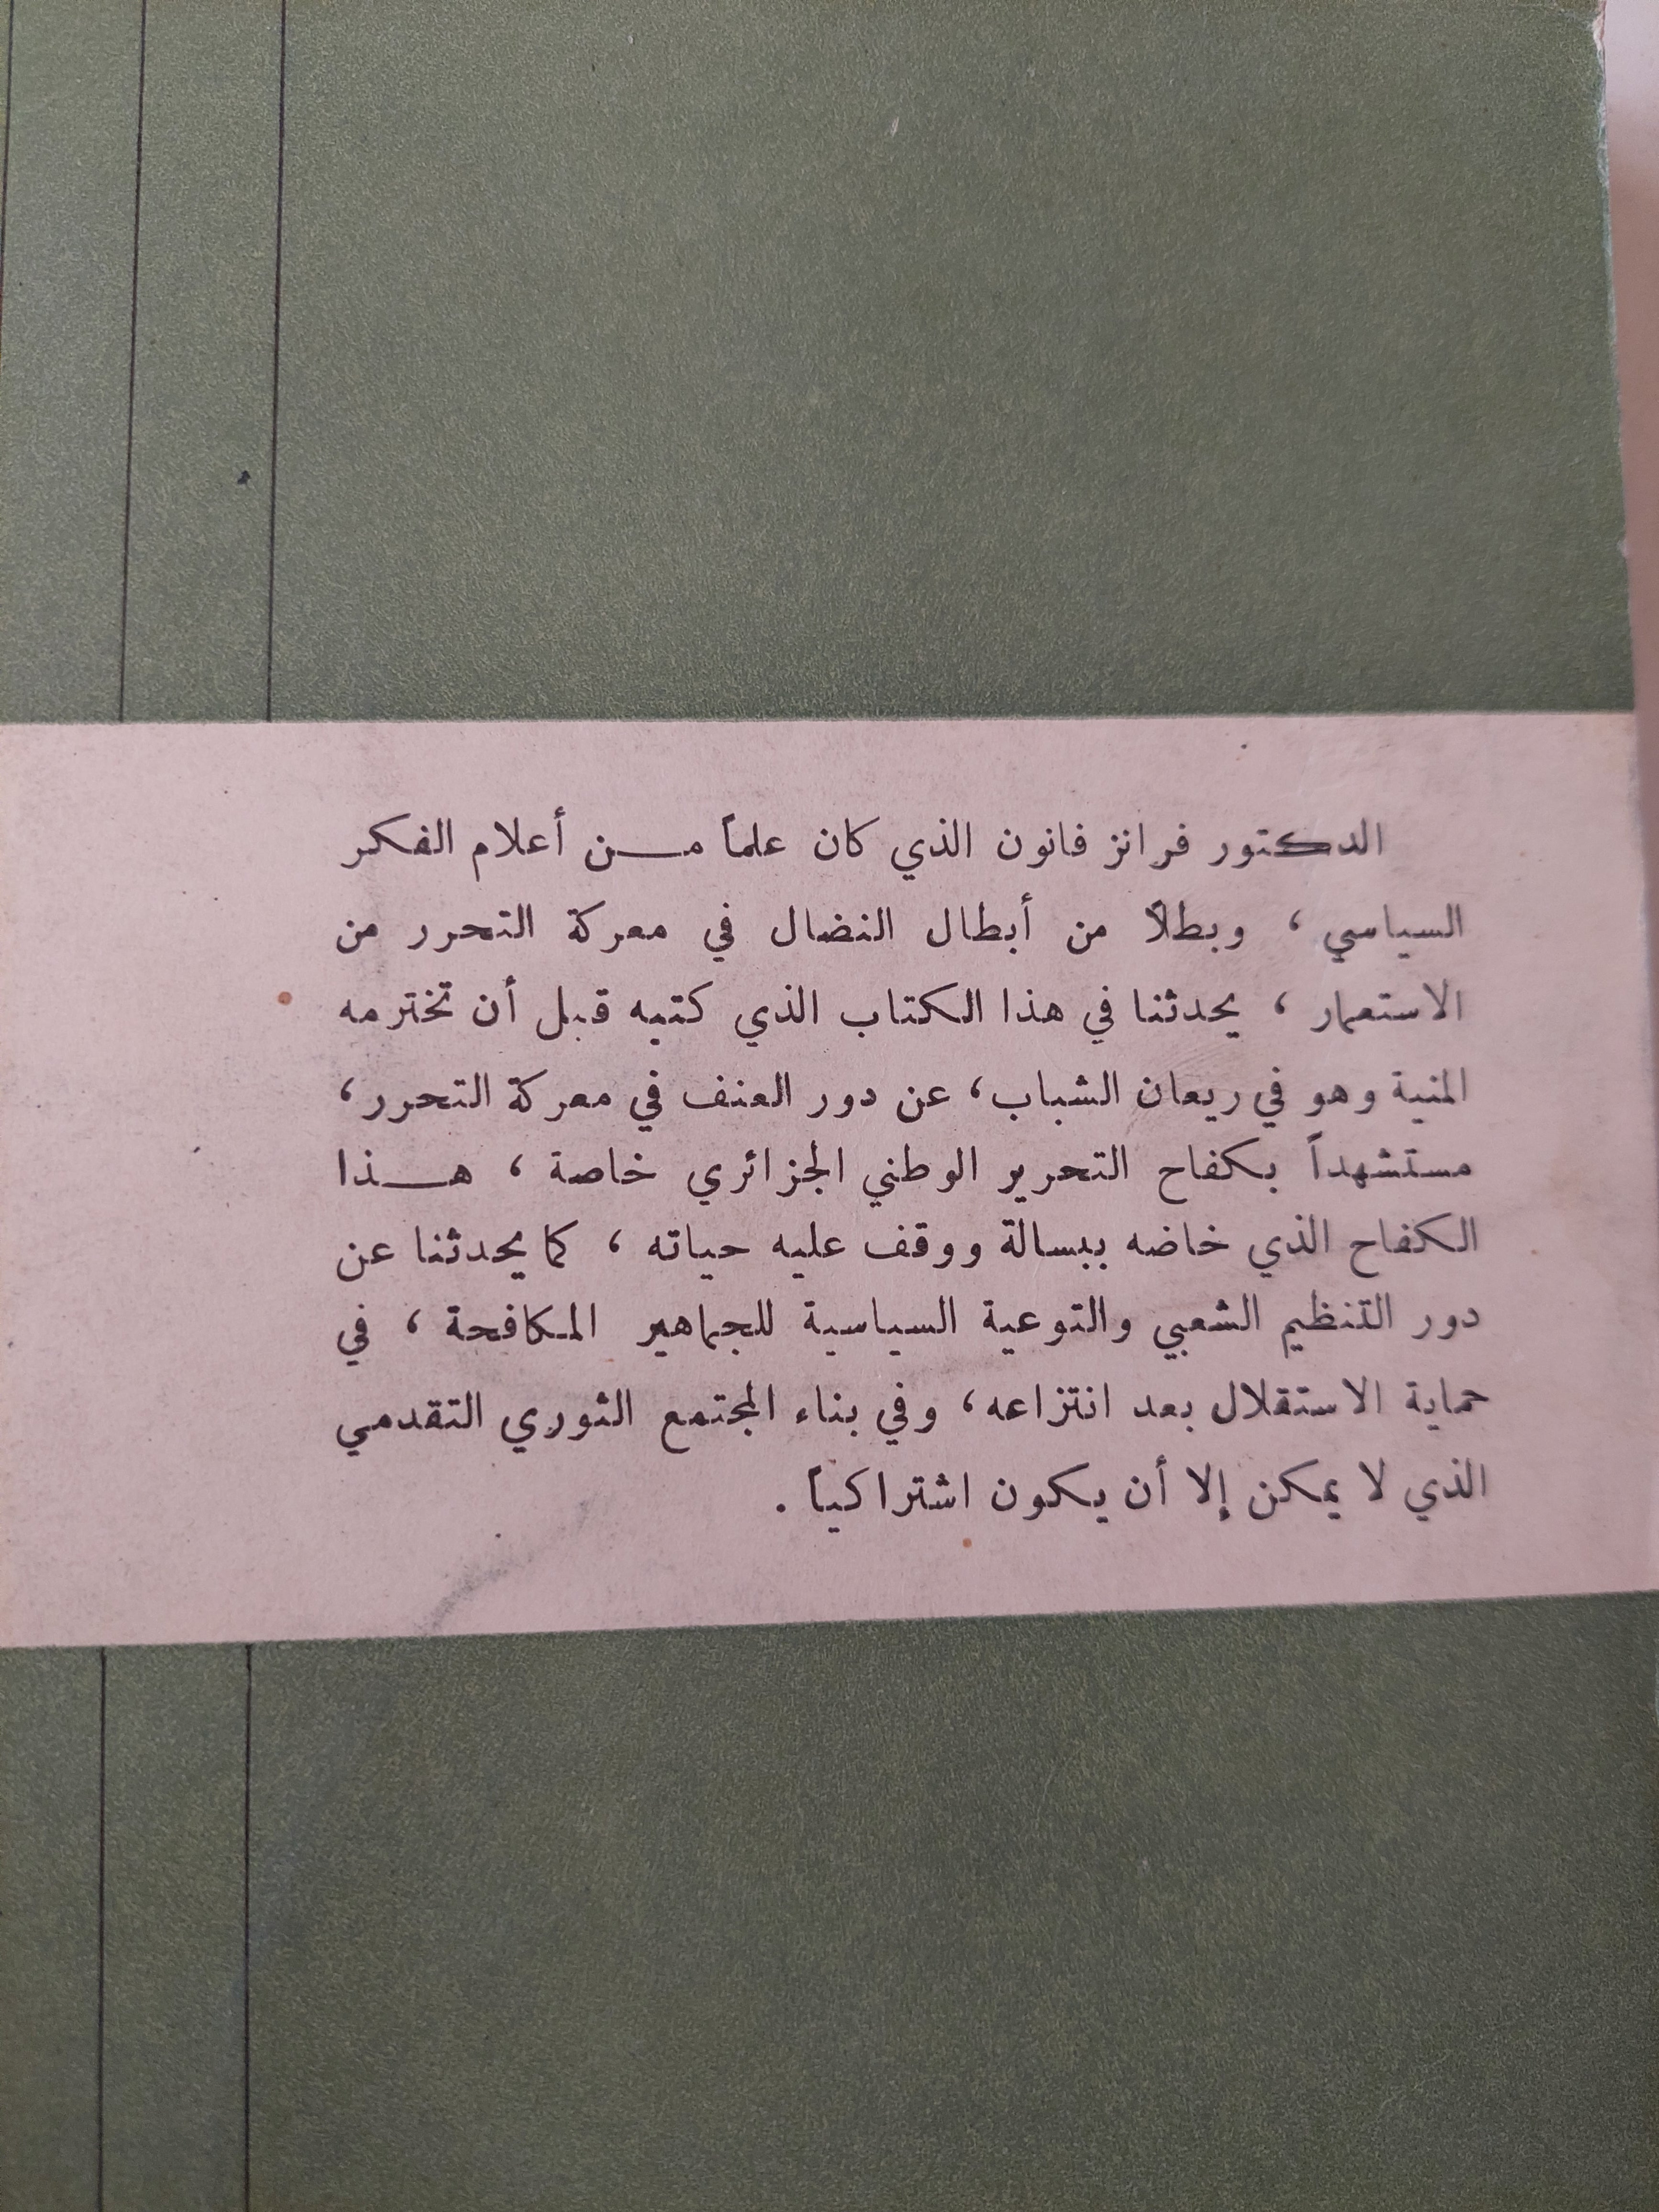 الدكتور فرانز فانون الذي كان علماً مـــن أعلام الفكر
السياسي ، وبطلاً من أبطال النضال في معركة التحرر من
الاستعمار ، يحدثنا في هذا الكتاب الذي كتبه قبل أن تخترمه
المنية وهو في ريعان الشباب، عن دور العنف في معركة التحرر،
مستشهداً بكفاح التحرير الوطني الجزائري خاصة ، هـــذا
الكفاح الذي خاضه ببسالة ووقف عليه حياته ، كما يحدثنا عن
دور التنظيم الشعبي والتوعية السياسية للجماهير المكافحة ، في
حماية الاستقلال بعد انتزاعه، وفي بناء المجتمع الثوري التقدمي
الذي لا يمكن إلا أن يكون اشتراكياً .